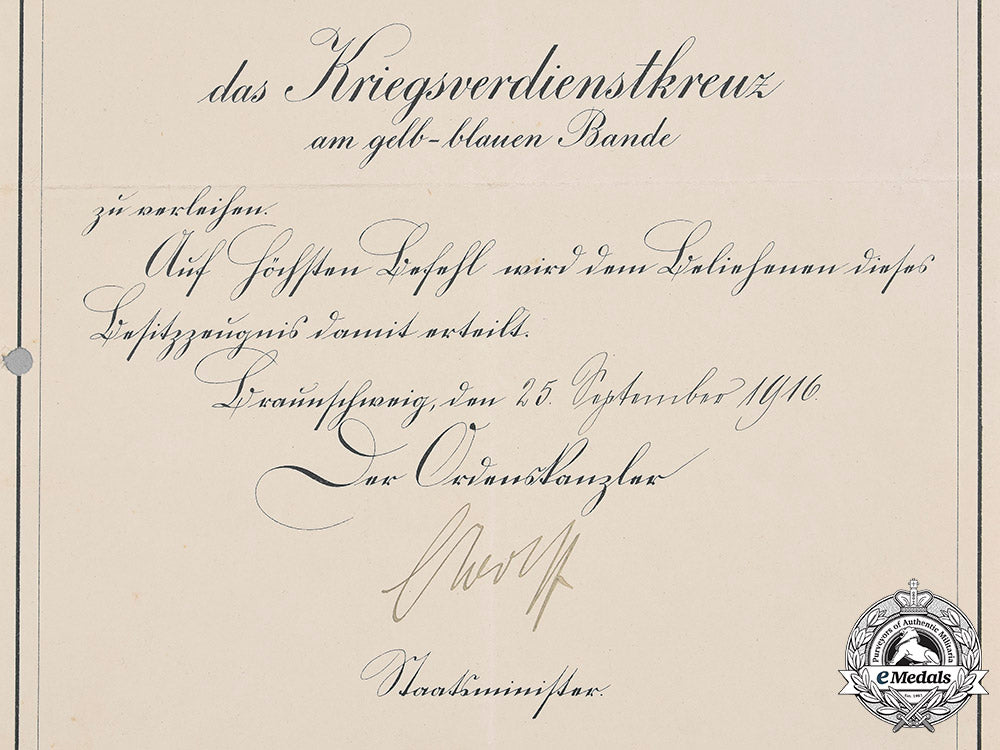 das Kriegsverdienstkreuz
am gelb-blauen Bande
zu verleihen.
Auf Höchsten Befehl wird dem Beliehenen dieses
Besitzzeugnis damit erteilt.
Braunschweig, den 25. September 1916.
Der Ordenskanzler
Wolff
Staatsminister.
Purveyors of Authentic Militaria
eMedals